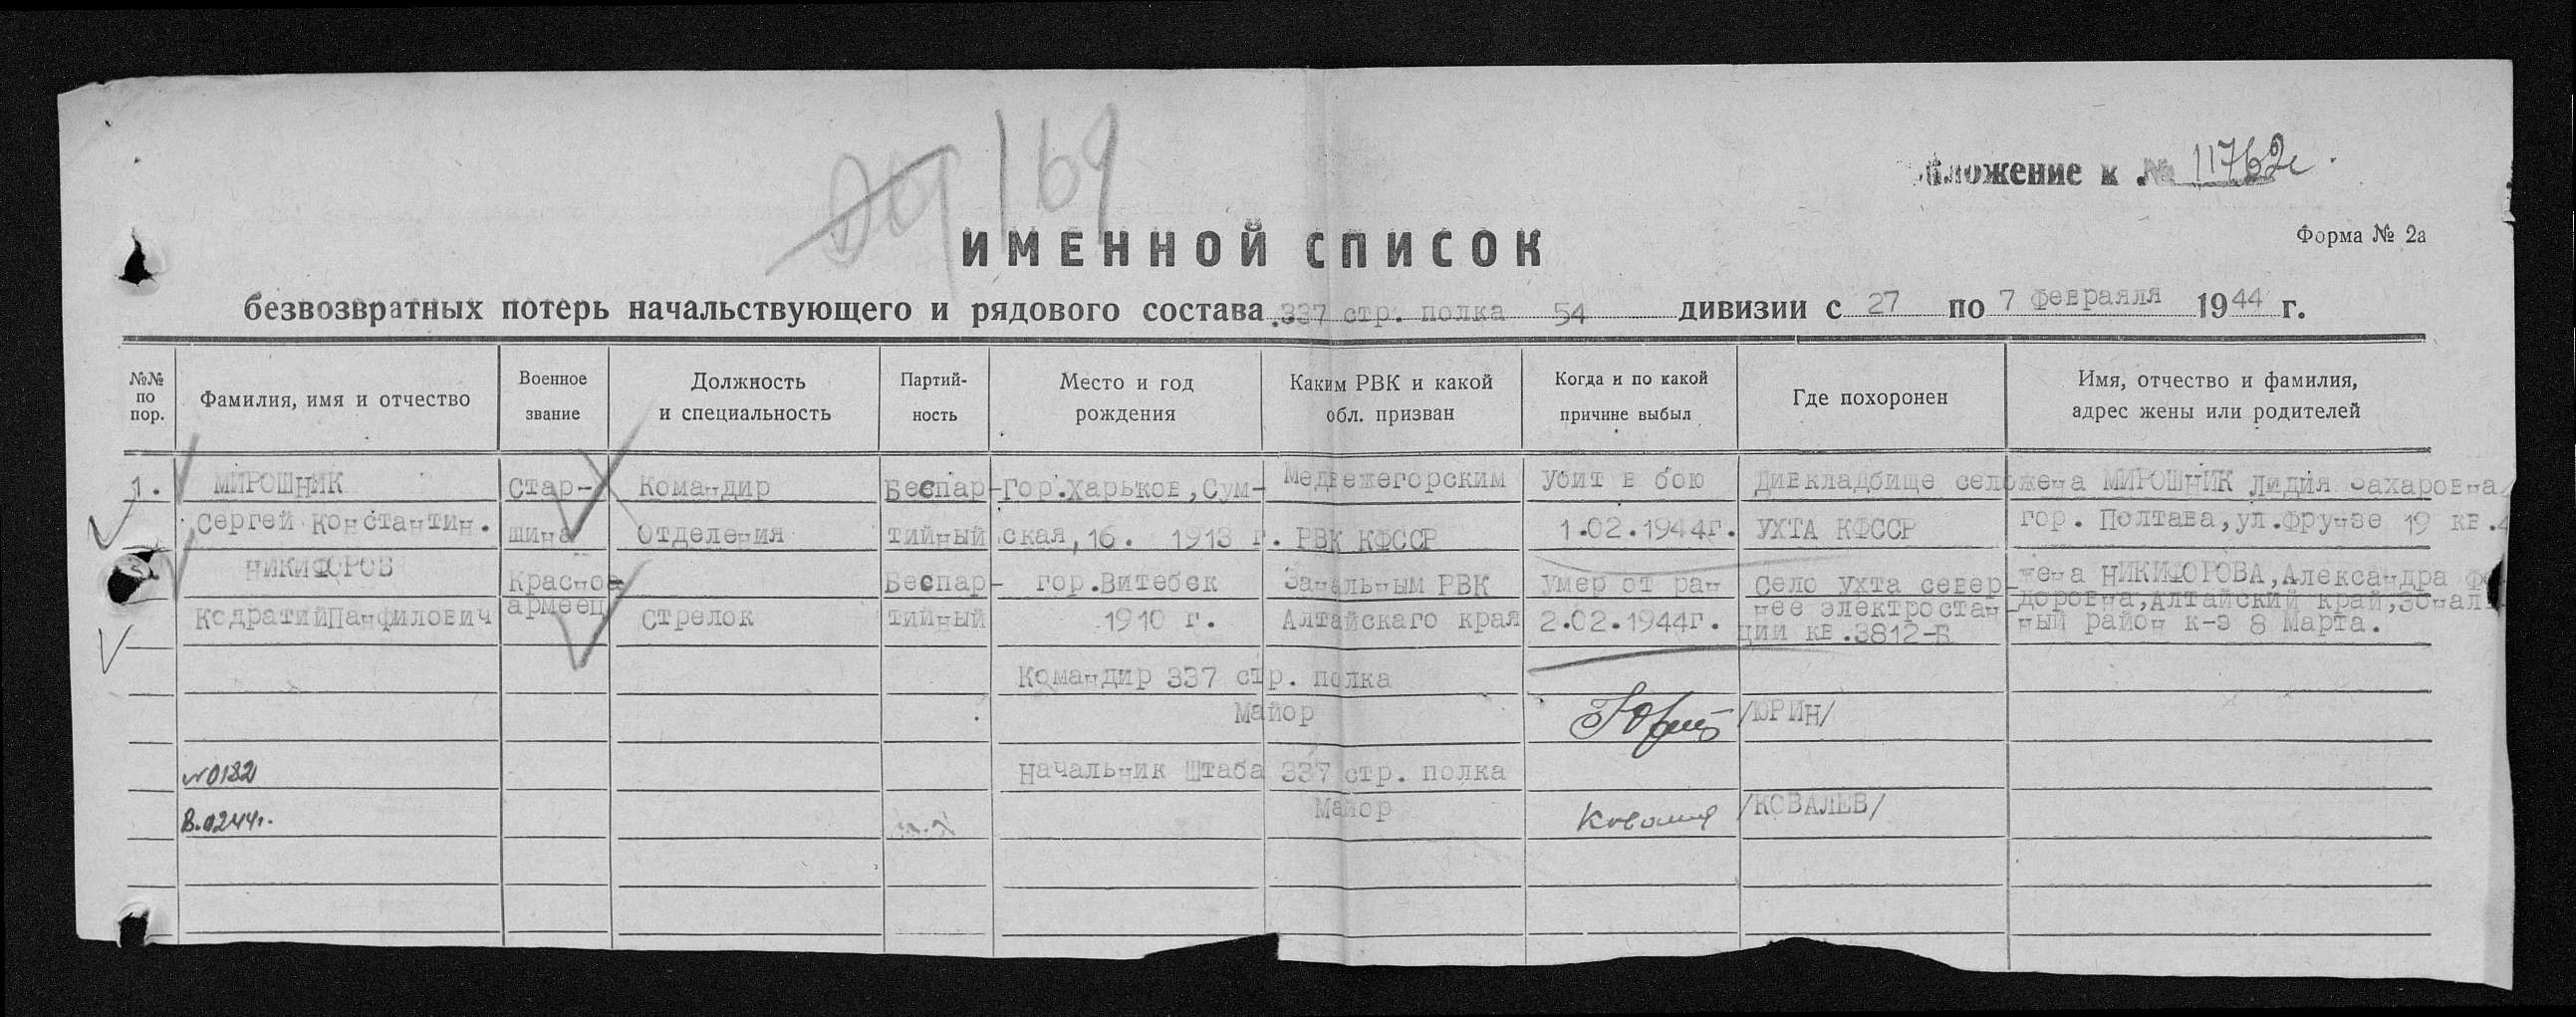 169
ложение к № 11762с.
Форма № 2а
ИМЕННОЙ СПИСОК
безвозвратных потерь начальствующего и рядового состава 337 стр. полка 54 дивизии с 27 по 7 февраяля 1944 г.
№№ по пор.
Фамилия, имя и отчество
Военное звание
Должность и специальность
Партий-ность
Место и год рождения
Каким РВК и какой обл. призван
Когда и по какой причине выбыл
Где похоронен
Имя, отчество и фамилия, адрес жены или родителей
1. МИРОШНИК Стар- Командир Беспар- Гор.Харьков, Сум- Медвежегорским Убит в бою Дивкладбище село жена МИРОШНИК Лидия Захаровна
Сергей Константин. шина Отделения тийный ская, 16. 1913 г. РВК КФССР 1.02.1944г. УХТА КФССР гор. Полтава, ул.Фрунзе 19 кв.4
НИКИФОРОВ Красно- Беспар- гор.Витебск Зональным РВК умер от ран Село Ухта север- жена НИКИФОРОВА, Александра Фе-
Кодратий Панфилович армеец Стрелок тийный 1910 г. Алтайскаго края 2.02.1944г. нее электростан доровна, Алтайский край, Зональ-
ции кв.3812-Б ный район к-з 8 Марта.
Командир 337 стр. полка
Майор /ЮРИН/
№0182 Начальник Штаба 337 стр. полка
8.0244г. Майор Ковалев /КОВАЛЕВ/